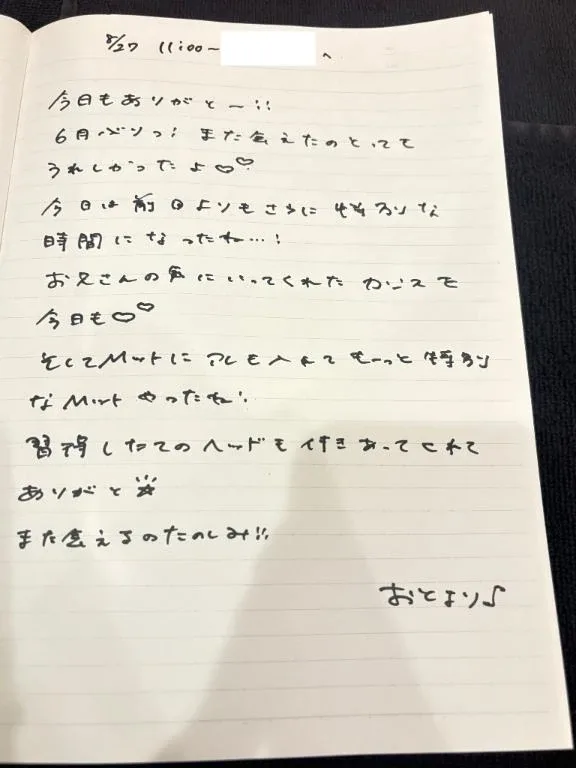 8/27 11:00〜 へ
今日もありがとー!!
6月ぶりっ! また会えたのとってて
うれしかったよ♡♡
今日は前回よりもさらに特別な
時間になったね…!
お兄さんの気にいってくれたカンスモ
今日も♡♡
そしてMットに アレも入れて もーっと特別
なMット やったね!
習得したてのヘッドも付きあってくれて
ありがと☆
また会えるのたのしみ!!
おとより♪